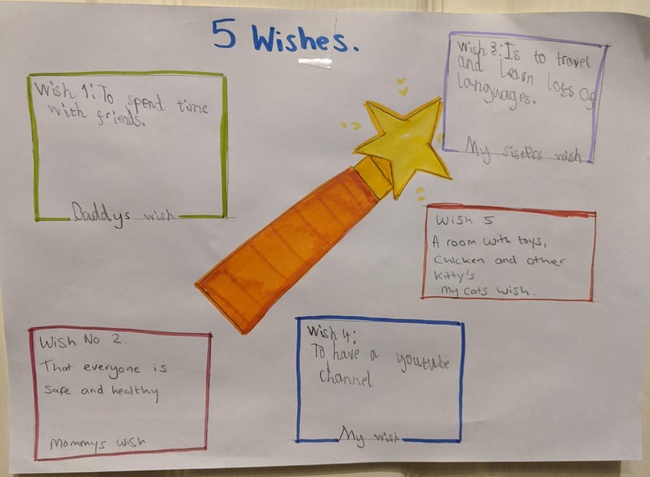 5 Wishes.
Wish 1: To spend time
with friends.
Daddys wish
Wish 3: Is to travel
and learn lots of
languages.
My sisters wish
Wish 5
A room with toys,
Chicken and other
Kitty's
My cats wish.
Wish No 2.
That everyone is
safe and healthy
Mommys wish
Wish 4:
To have a youtube
channel
My wish